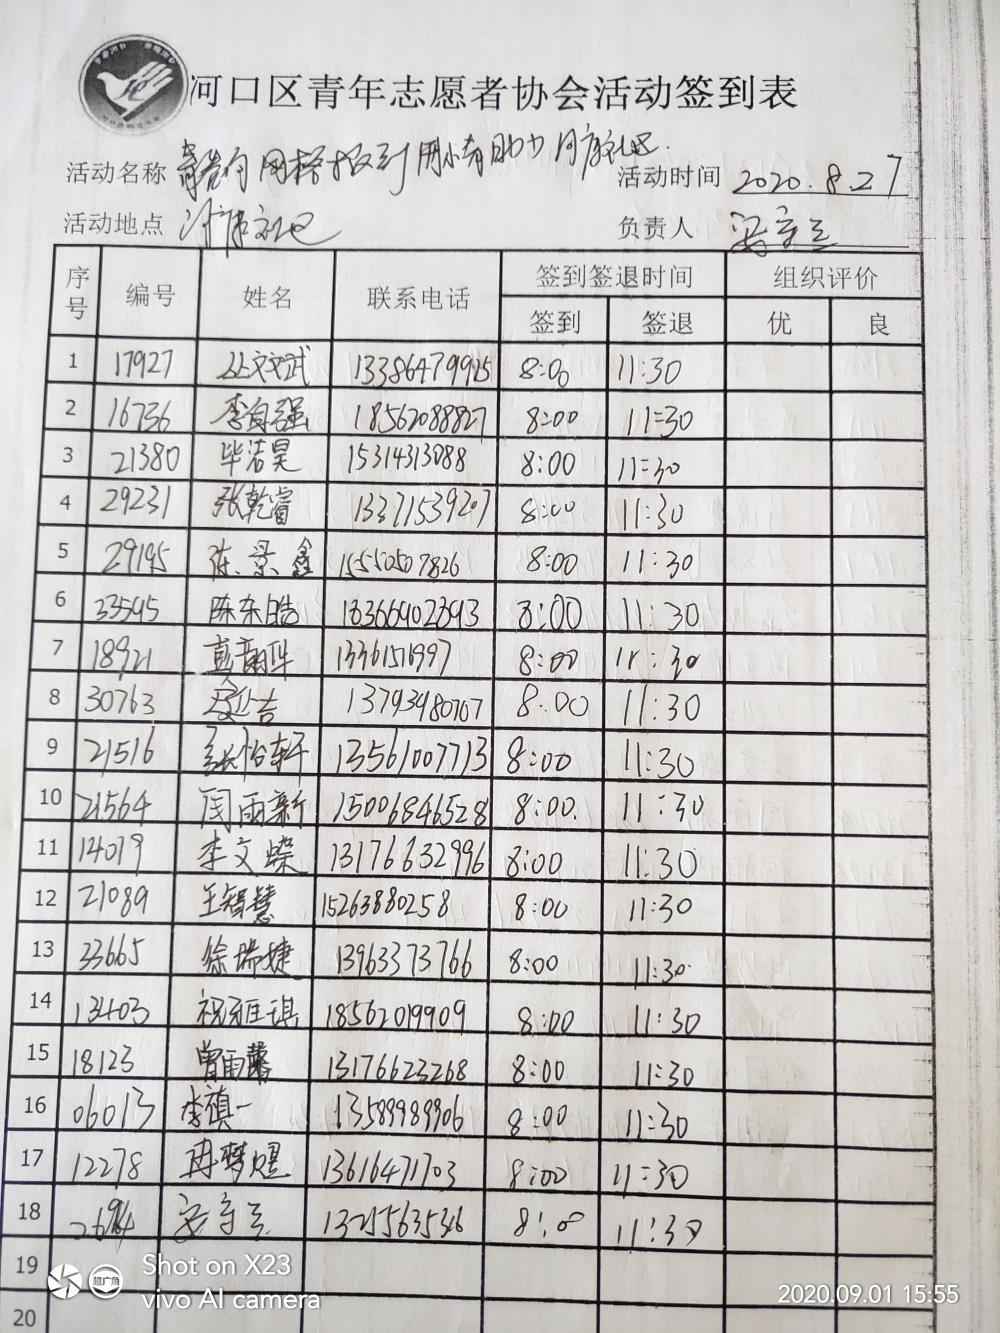 河口区青年志愿者协会活动签到表
活动名称 网格报到 活动时间 2020.8.27
活动地点 负责人
序号 编号 姓名 联系电话 签到签退时间 组织评价
签到 签退 优 良
1 17927 丛文武 13386479925 8:00 11:30
2 16736 李自强 18562088827 8:00 11:30
3 21380 毕洁昊 15314313088 8:00 11:30
4 29231 张乾睿 13371539207 8:00 11:30
5 29195 陈景鑫 15550507826 8:00 11:30
6 33595 陈东皓 8:00 11:30
7 18921 8:00 11:30
8 30763 13793980707 8:00 11:30
9 21516 张怡轩 13561007713 8:00 11:30
10 21564 闫雨新 15006846528 8:00 11:30
11 14019 李文燊 13176632996 8:00 11:30
12 21089 王智慧 15263880258 8:00 11:30
13 33665 徐瑞捷 13963373766 8:00 11:30
14 13403 祝雅琪 18562019909 8:00 11:30
15 18123 曾雨馨 13176623268 8:00 11:30
16 06013 李禛一 13589989906 8:00 11:30
17 12278 冉梦煜 13616471703 8:00 11:30
18 13255635346 8:00 11:30
19
20
超广角
Shot on X23
vivo AI camera
2020.09.01 15:55